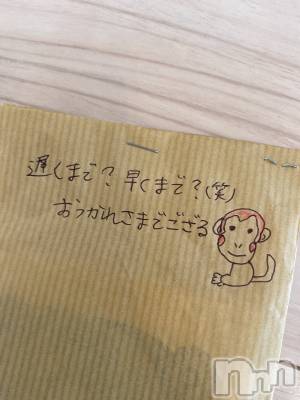 遅くまで?早くまで?(笑)
おつかれさまでござる
nnn